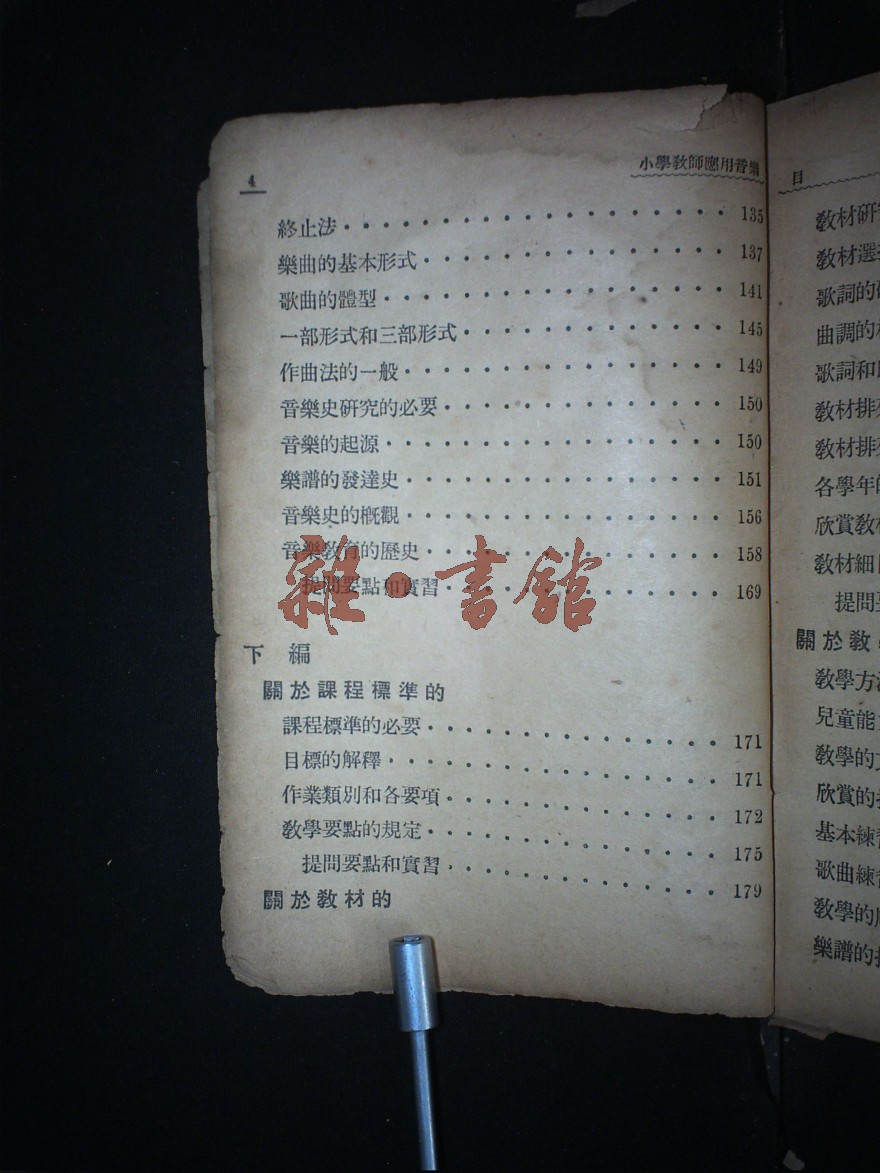 4
小學教師應用音樂
終止法 135
樂曲的基本形式 137
歌曲的體型 141
一部形式和三部形式 145
作曲法的一般 149
音樂史研究的必要 150
音樂的起源 150
樂譜的發達史 151
音樂史的概觀 156
音樂教育的歷史 158
提問要點和實習 169
雜·書館
下 編
關於課程標準的
課程標準的必要 171
目標的解釋 171
作業類別和各要項 172
教學要點的規定 175
提問要點和實習 179
關於教材的
目
教材研
教材選
歌詞的
曲調的
歌詞和
教材排
教材排
各學年的
欣賞教材
教材細目
提問
關於教
教學方法
兒童能
教學的
欣賞的
基本練習
歌曲練習
教學的
樂譜的